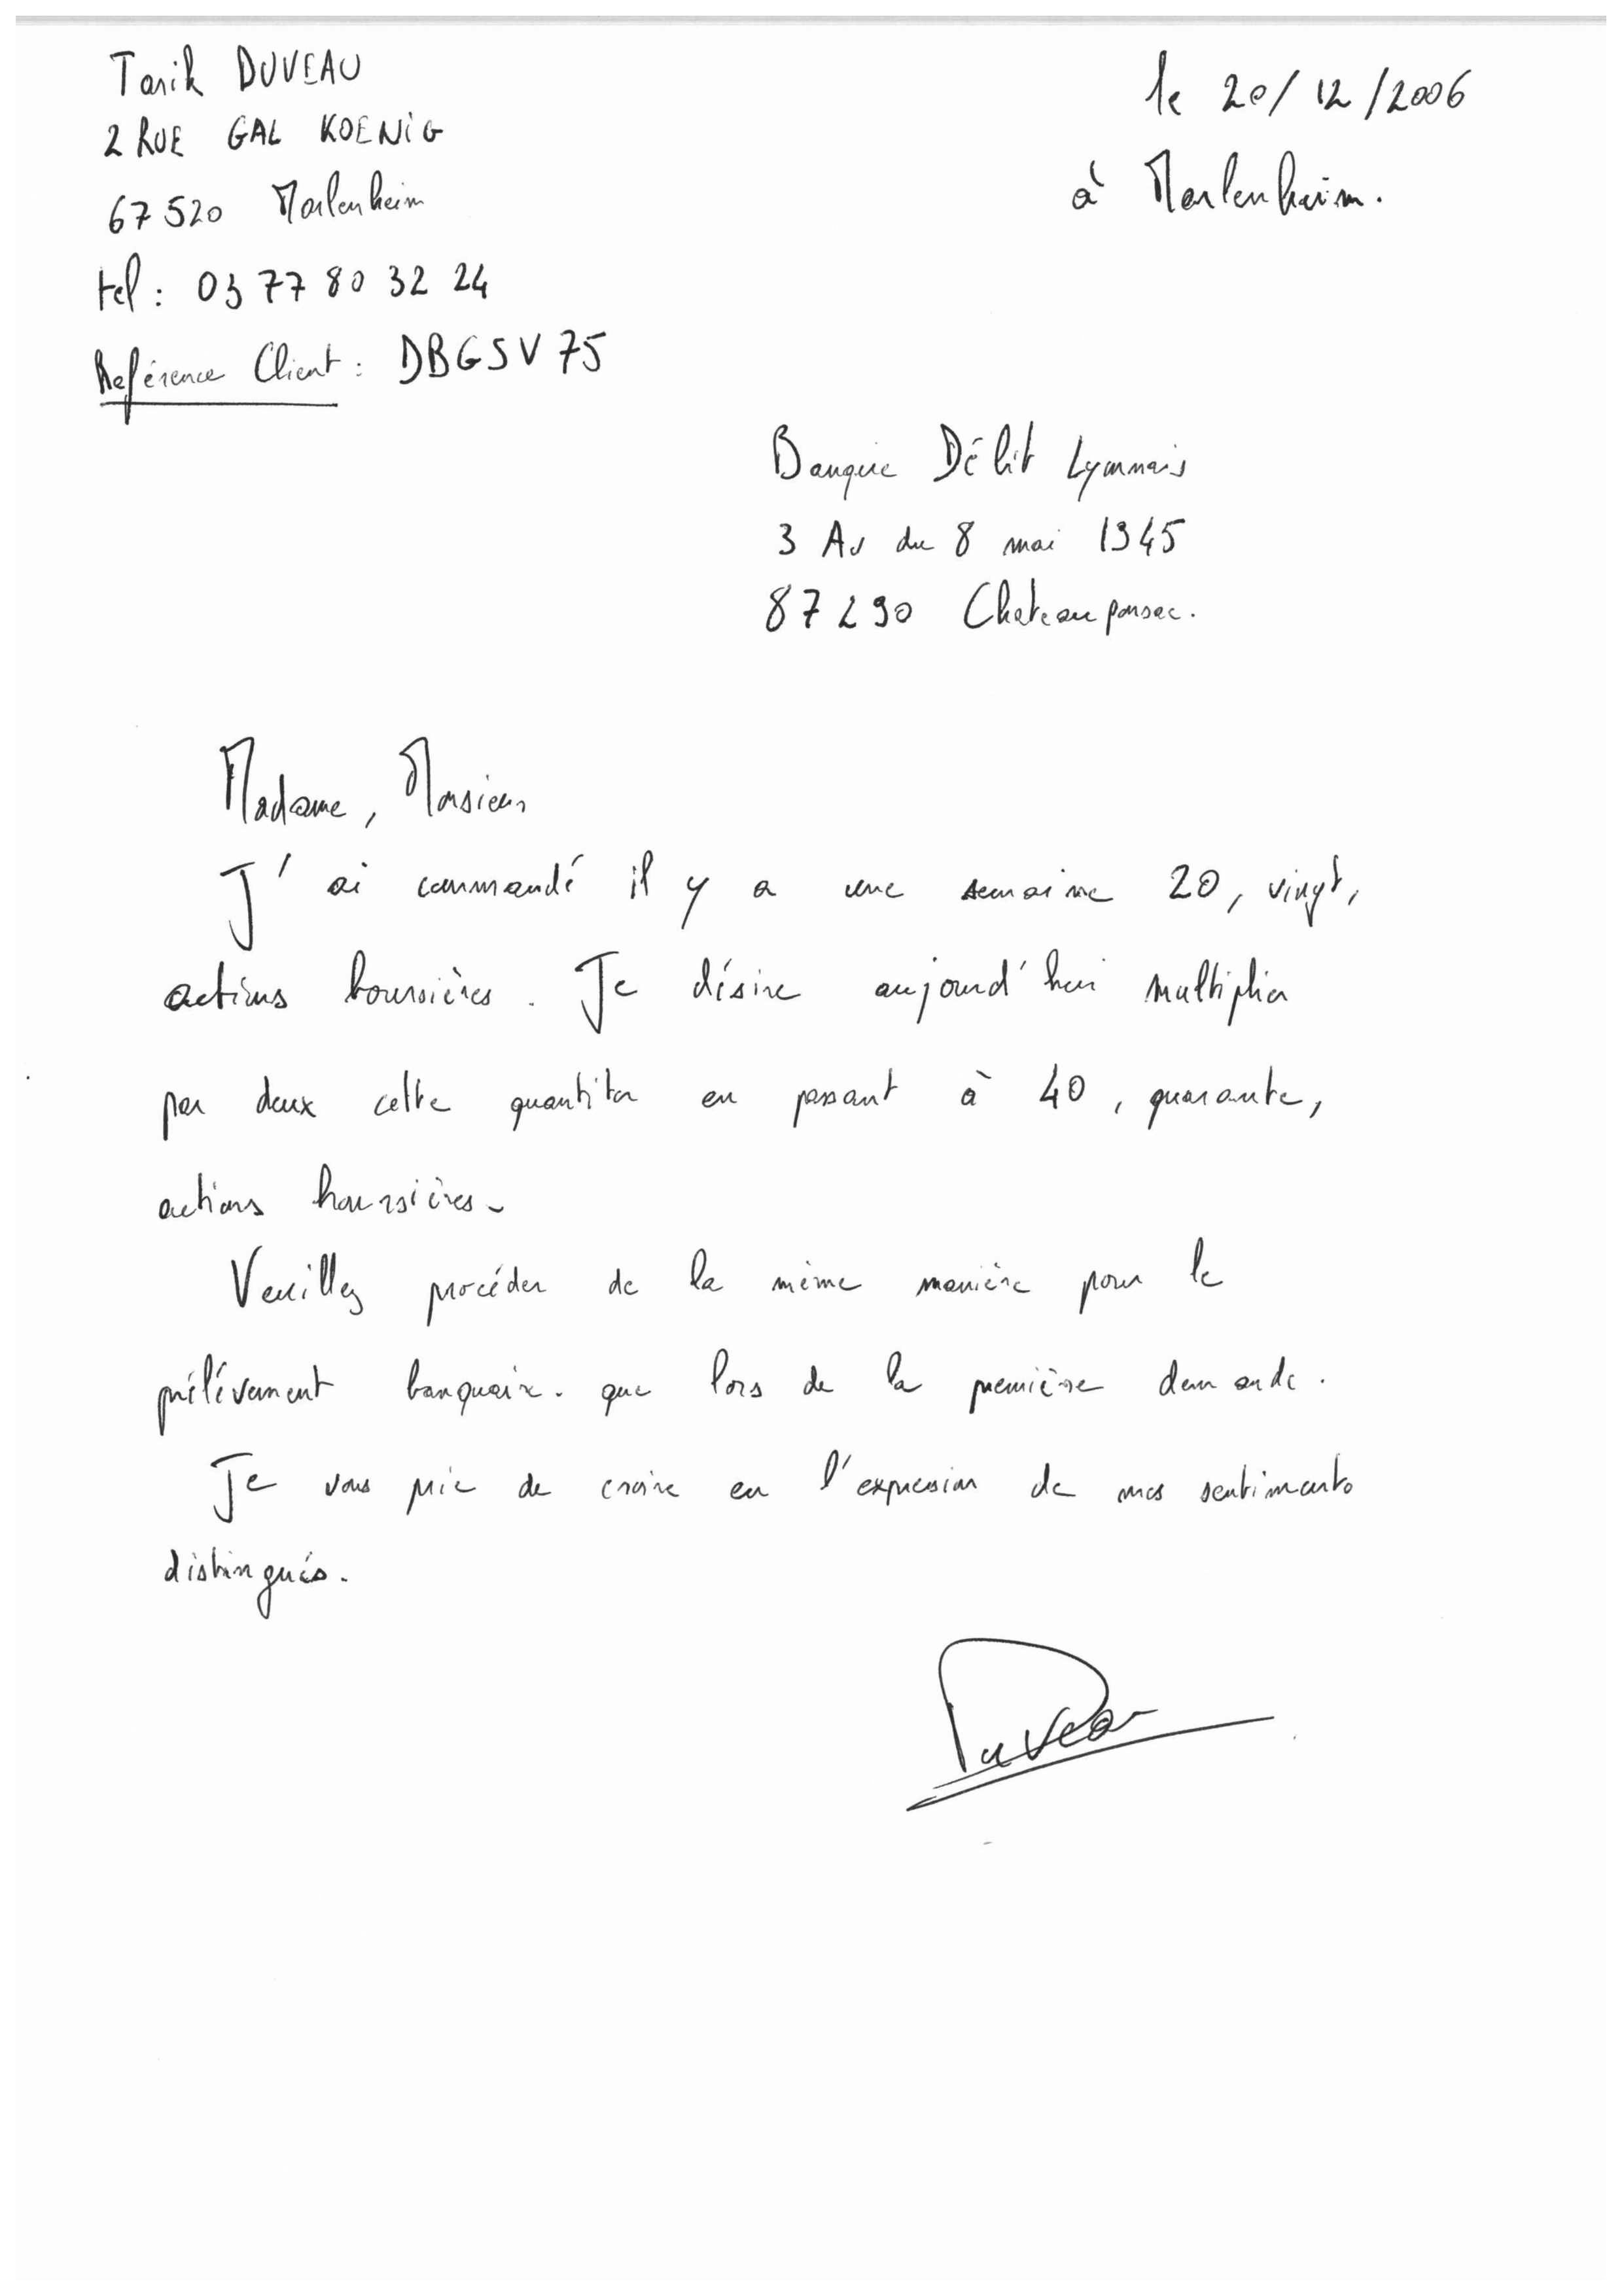 Tarik DUVEAU
2 RUE GAL KOENIG
67520 Marlenheim
tel : 03 77 80 32 24
Reférence Client : DBGSV75
le 20/12/2006
à Marlenheim.
Banque Débit Lyonnais
3 Av du 8 mai 1945
87290 Chateauponsac.
Madame, Monsieur
J'ai commandé il y a une semaine 20, vingt,
actions boursières. Je désire aujourd'hui multiplier
par deux cette quantiter en passant à 40, quarante,
actions boursières.
Veuillez procéder de la même manière pour le
prélévement banquaire. que lors de la première demande.
Je vous prie de croire en l'expression de mes sentiments
distingués.
Duveau